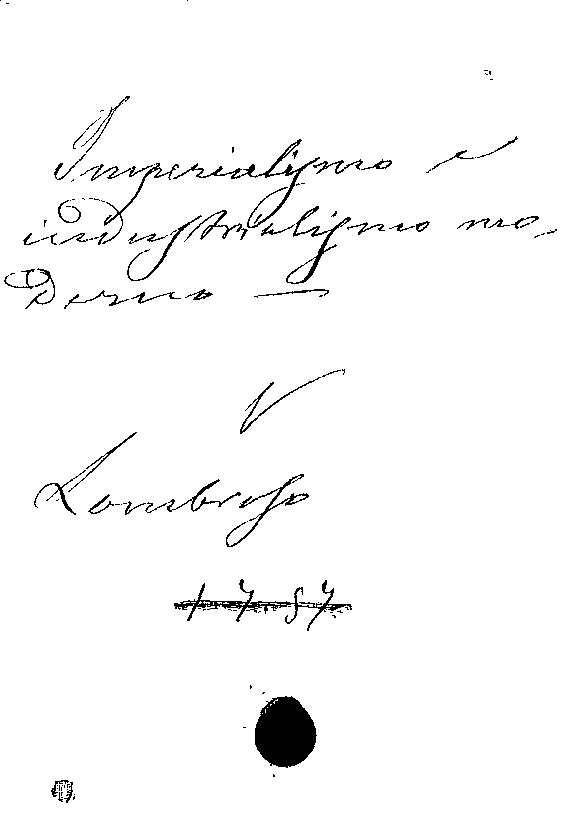 Imperialismo e
industrialismo mo-
derno —
V
Lombroso
1757